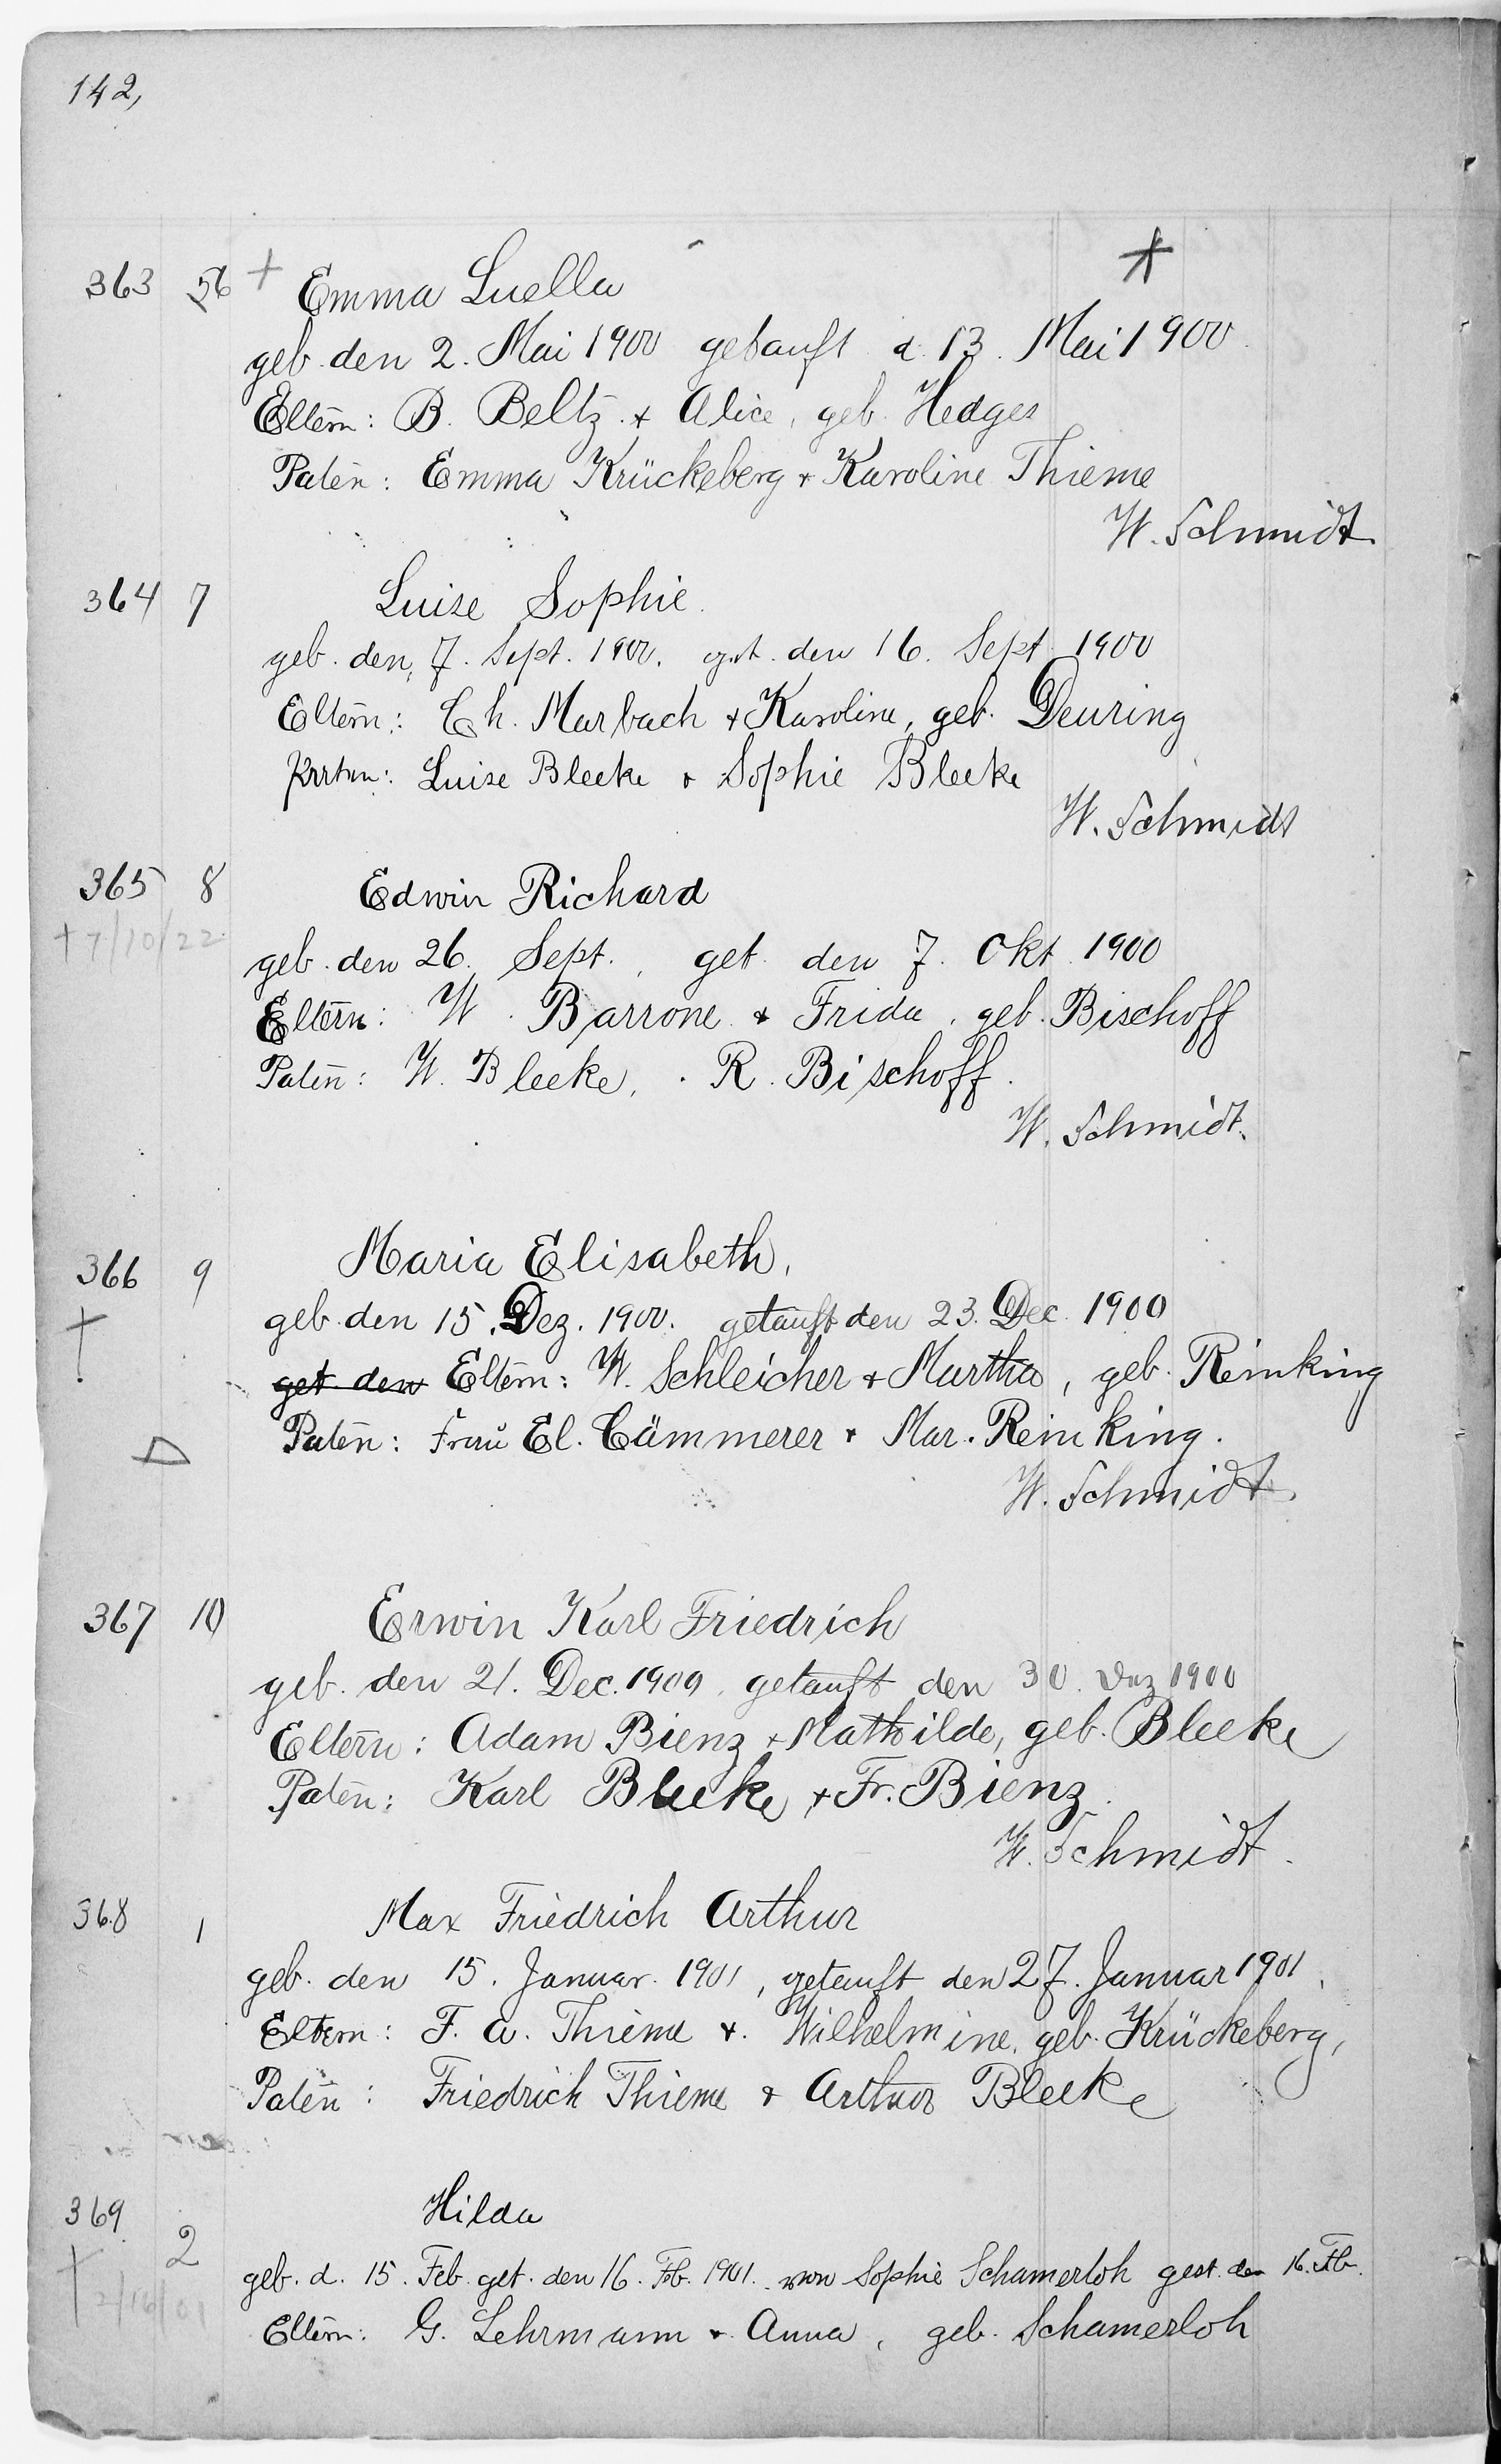 142,
*
363 56 + Emma Luella
geb. den 2. Mai 1900 getauft d. 13. Mai 1900.
Eltern: B. Beltz. + Alice, geb. Hedges
Paten: Emma Krückeberg + Karoline Thieme
W. Schmidt.
364 7 Luise Sophie.
geb. den 7. Sept. 1900. get. den 16. Sept 1900
Eltern: Ch. Marbach + Karoline, geb. Deuring
Paten: Luise Bleeke + Sophie Bleeke
W. Schmidt
365 8 Edwin Richard
+ 7/10/22
geb. den 26. Sept. get. den 7. Okt. 1900
Eltern: W. Barrone + Frida, geb. Bischoff
Paten: W. Bleeke, R. Bischoff.
W. Schmidt.
366 9 Maria Elisabeth,
geb. den 15. Dez. 1900. getauft den 23. Dec. 1900
† get den Eltern: W. Schleicher + Martha, geb. Reinking
Paten: Frau El. Cämmerer + Mar. Reinking.
W. Schmidt.
367 10 Erwin Karl Friedrich
geb. den 21. Dec. 1900, getauft den 30. Dez 1900
Eltern: Adam Bienz + Mathilde, geb. Bleeke
Paten: Karl Bleeke + Fr. Bienz.
W. Schmidt.
368 1 Max Friedrich Arthur
geb. den 15. Januar. 1901, getauft den 27. Januar 1901.
Eltern: F. W. Thieme +. Wilhelmine, geb. Krückeberg,
Paten: Friedrich Thieme + Arthur Bleeke
369 2 Hilda
geb. d. 15. Feb. get. den 16. Feb. 1901. von Sophie Schamerloh gest. den 16. Feb.
† 2/16/01
Eltern: G. Lehrmann + Anna, geb. Schamerloh